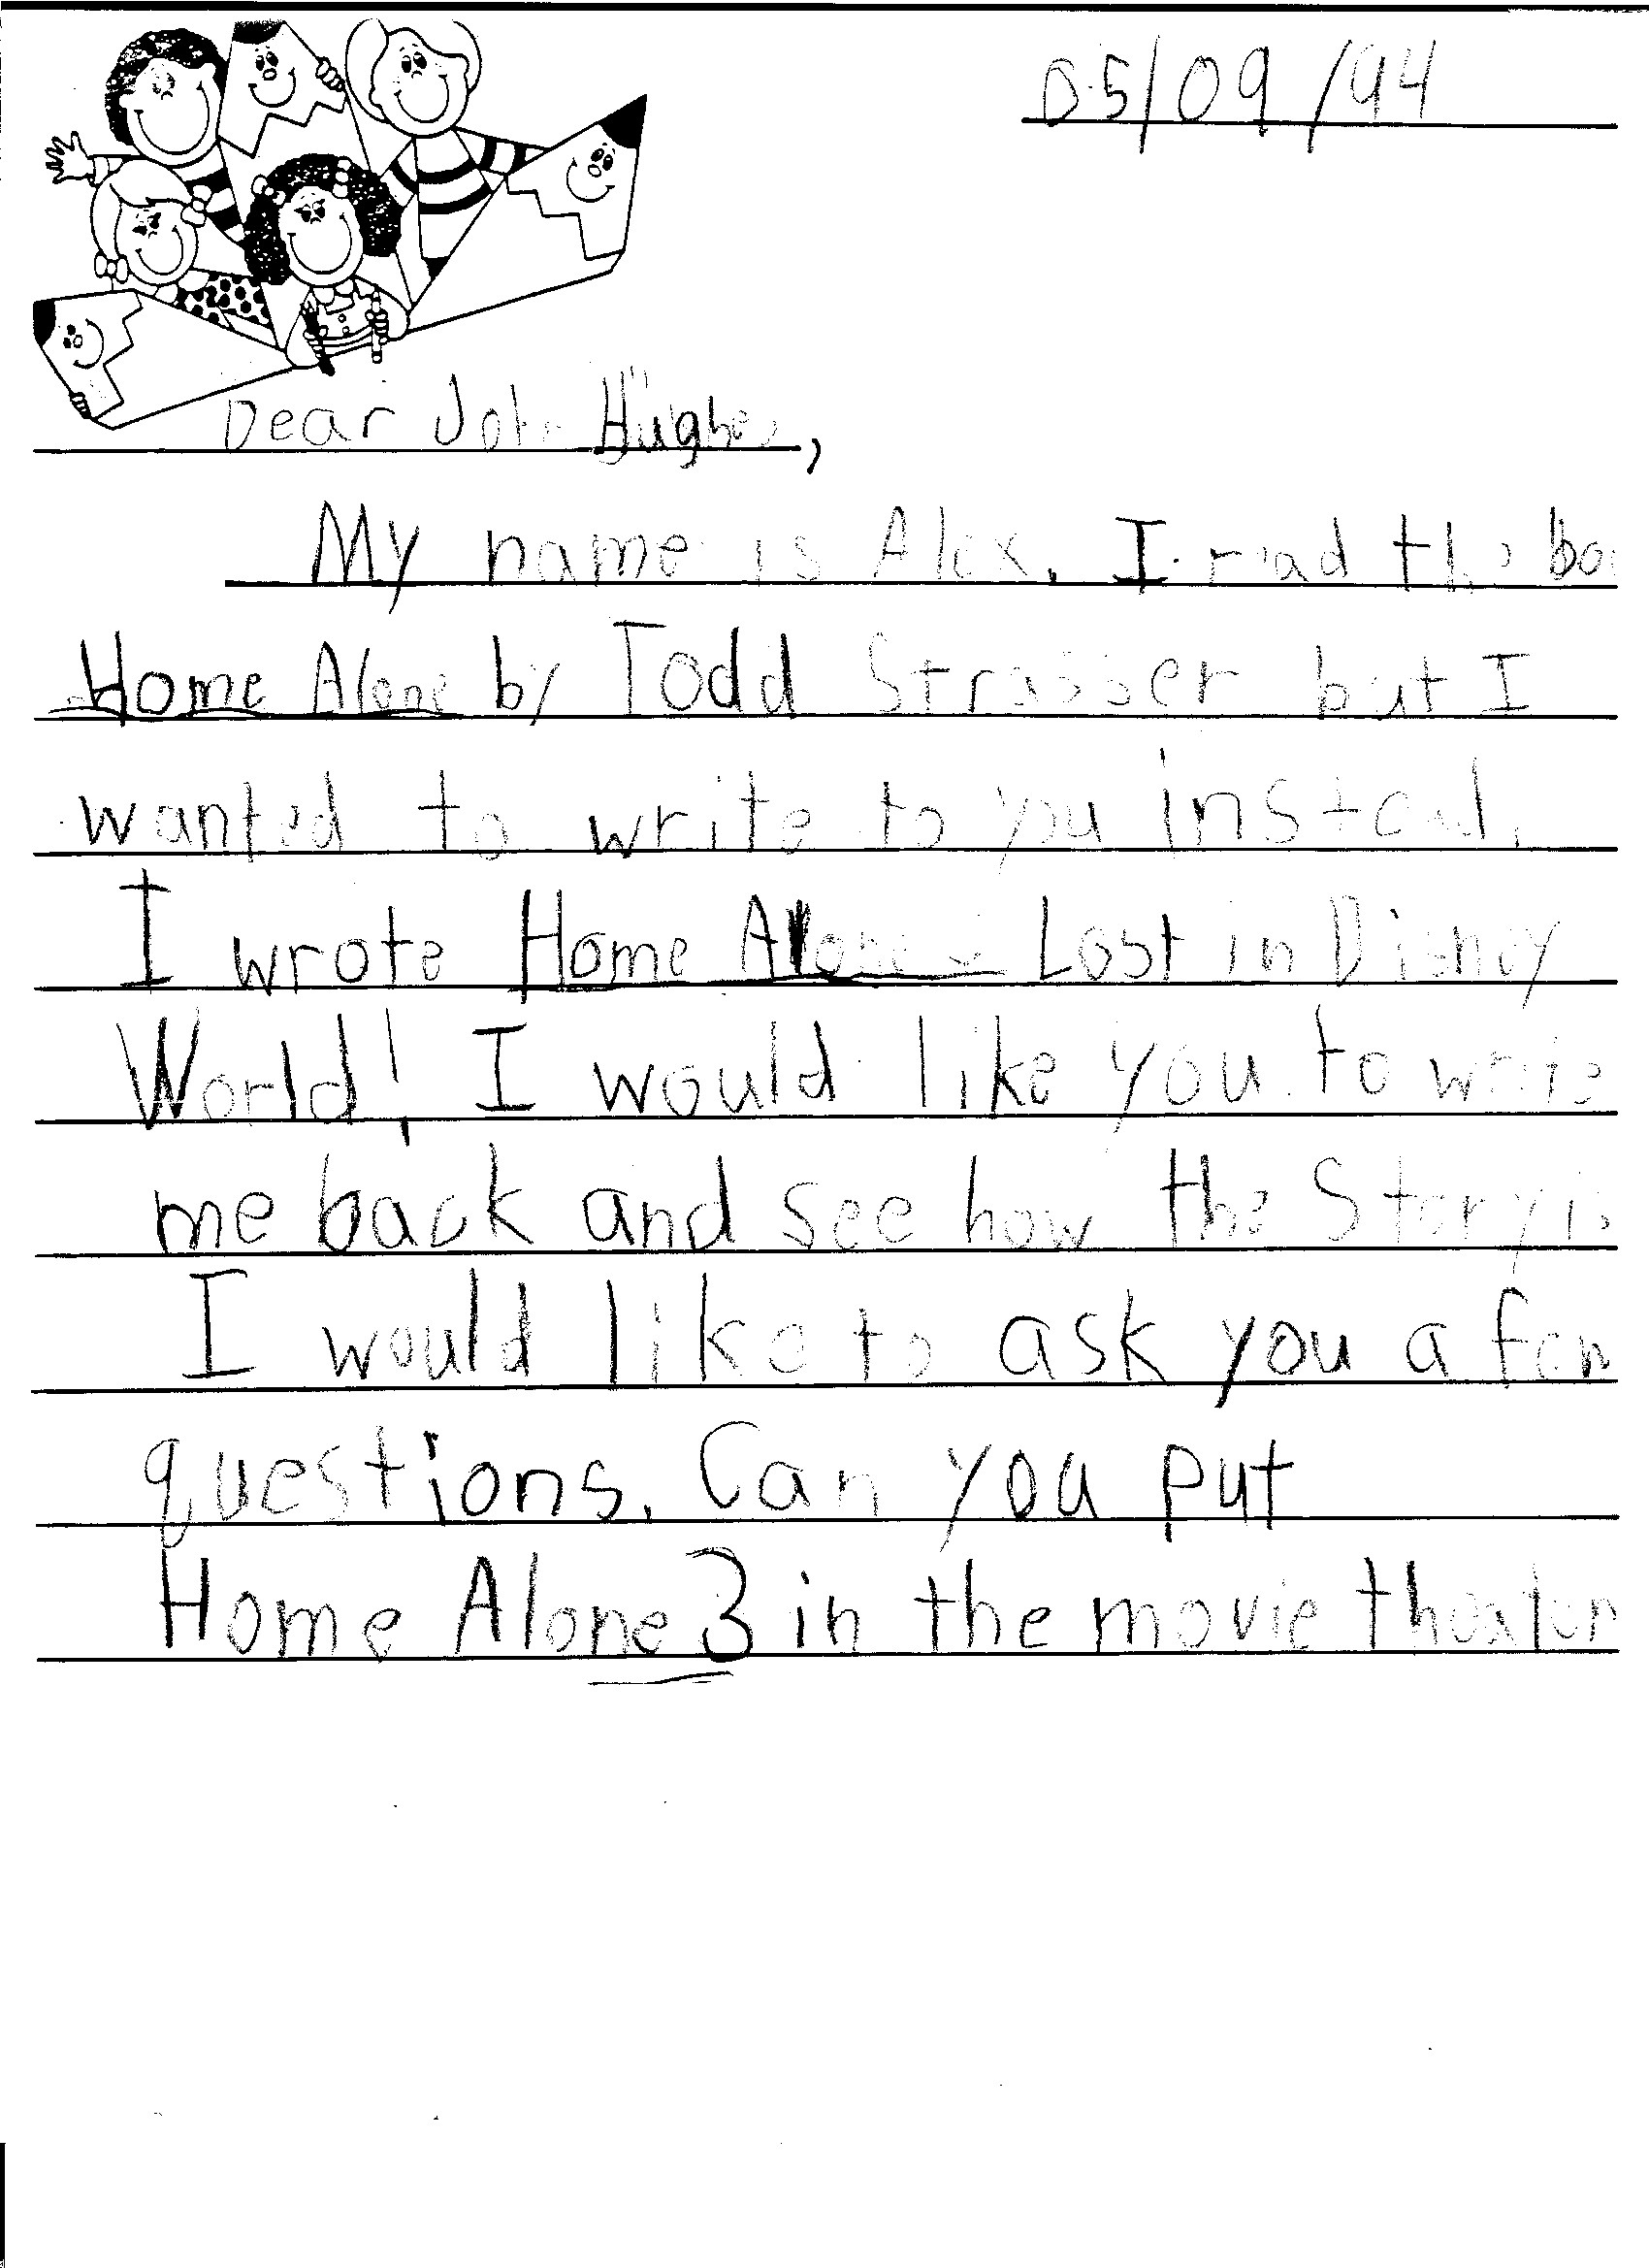 05/09/94
Dear John Hughes,
My name is Alex. I read the boo
Home Alone by Todd Strasser but I
wanted to write to you instead.
I wrote Home Alone: Lost in Disney
World! I would like you to write
me back and see how the Story is
I would like to ask you a few
questions. Can you put
Home Alone 3 in the movie theater